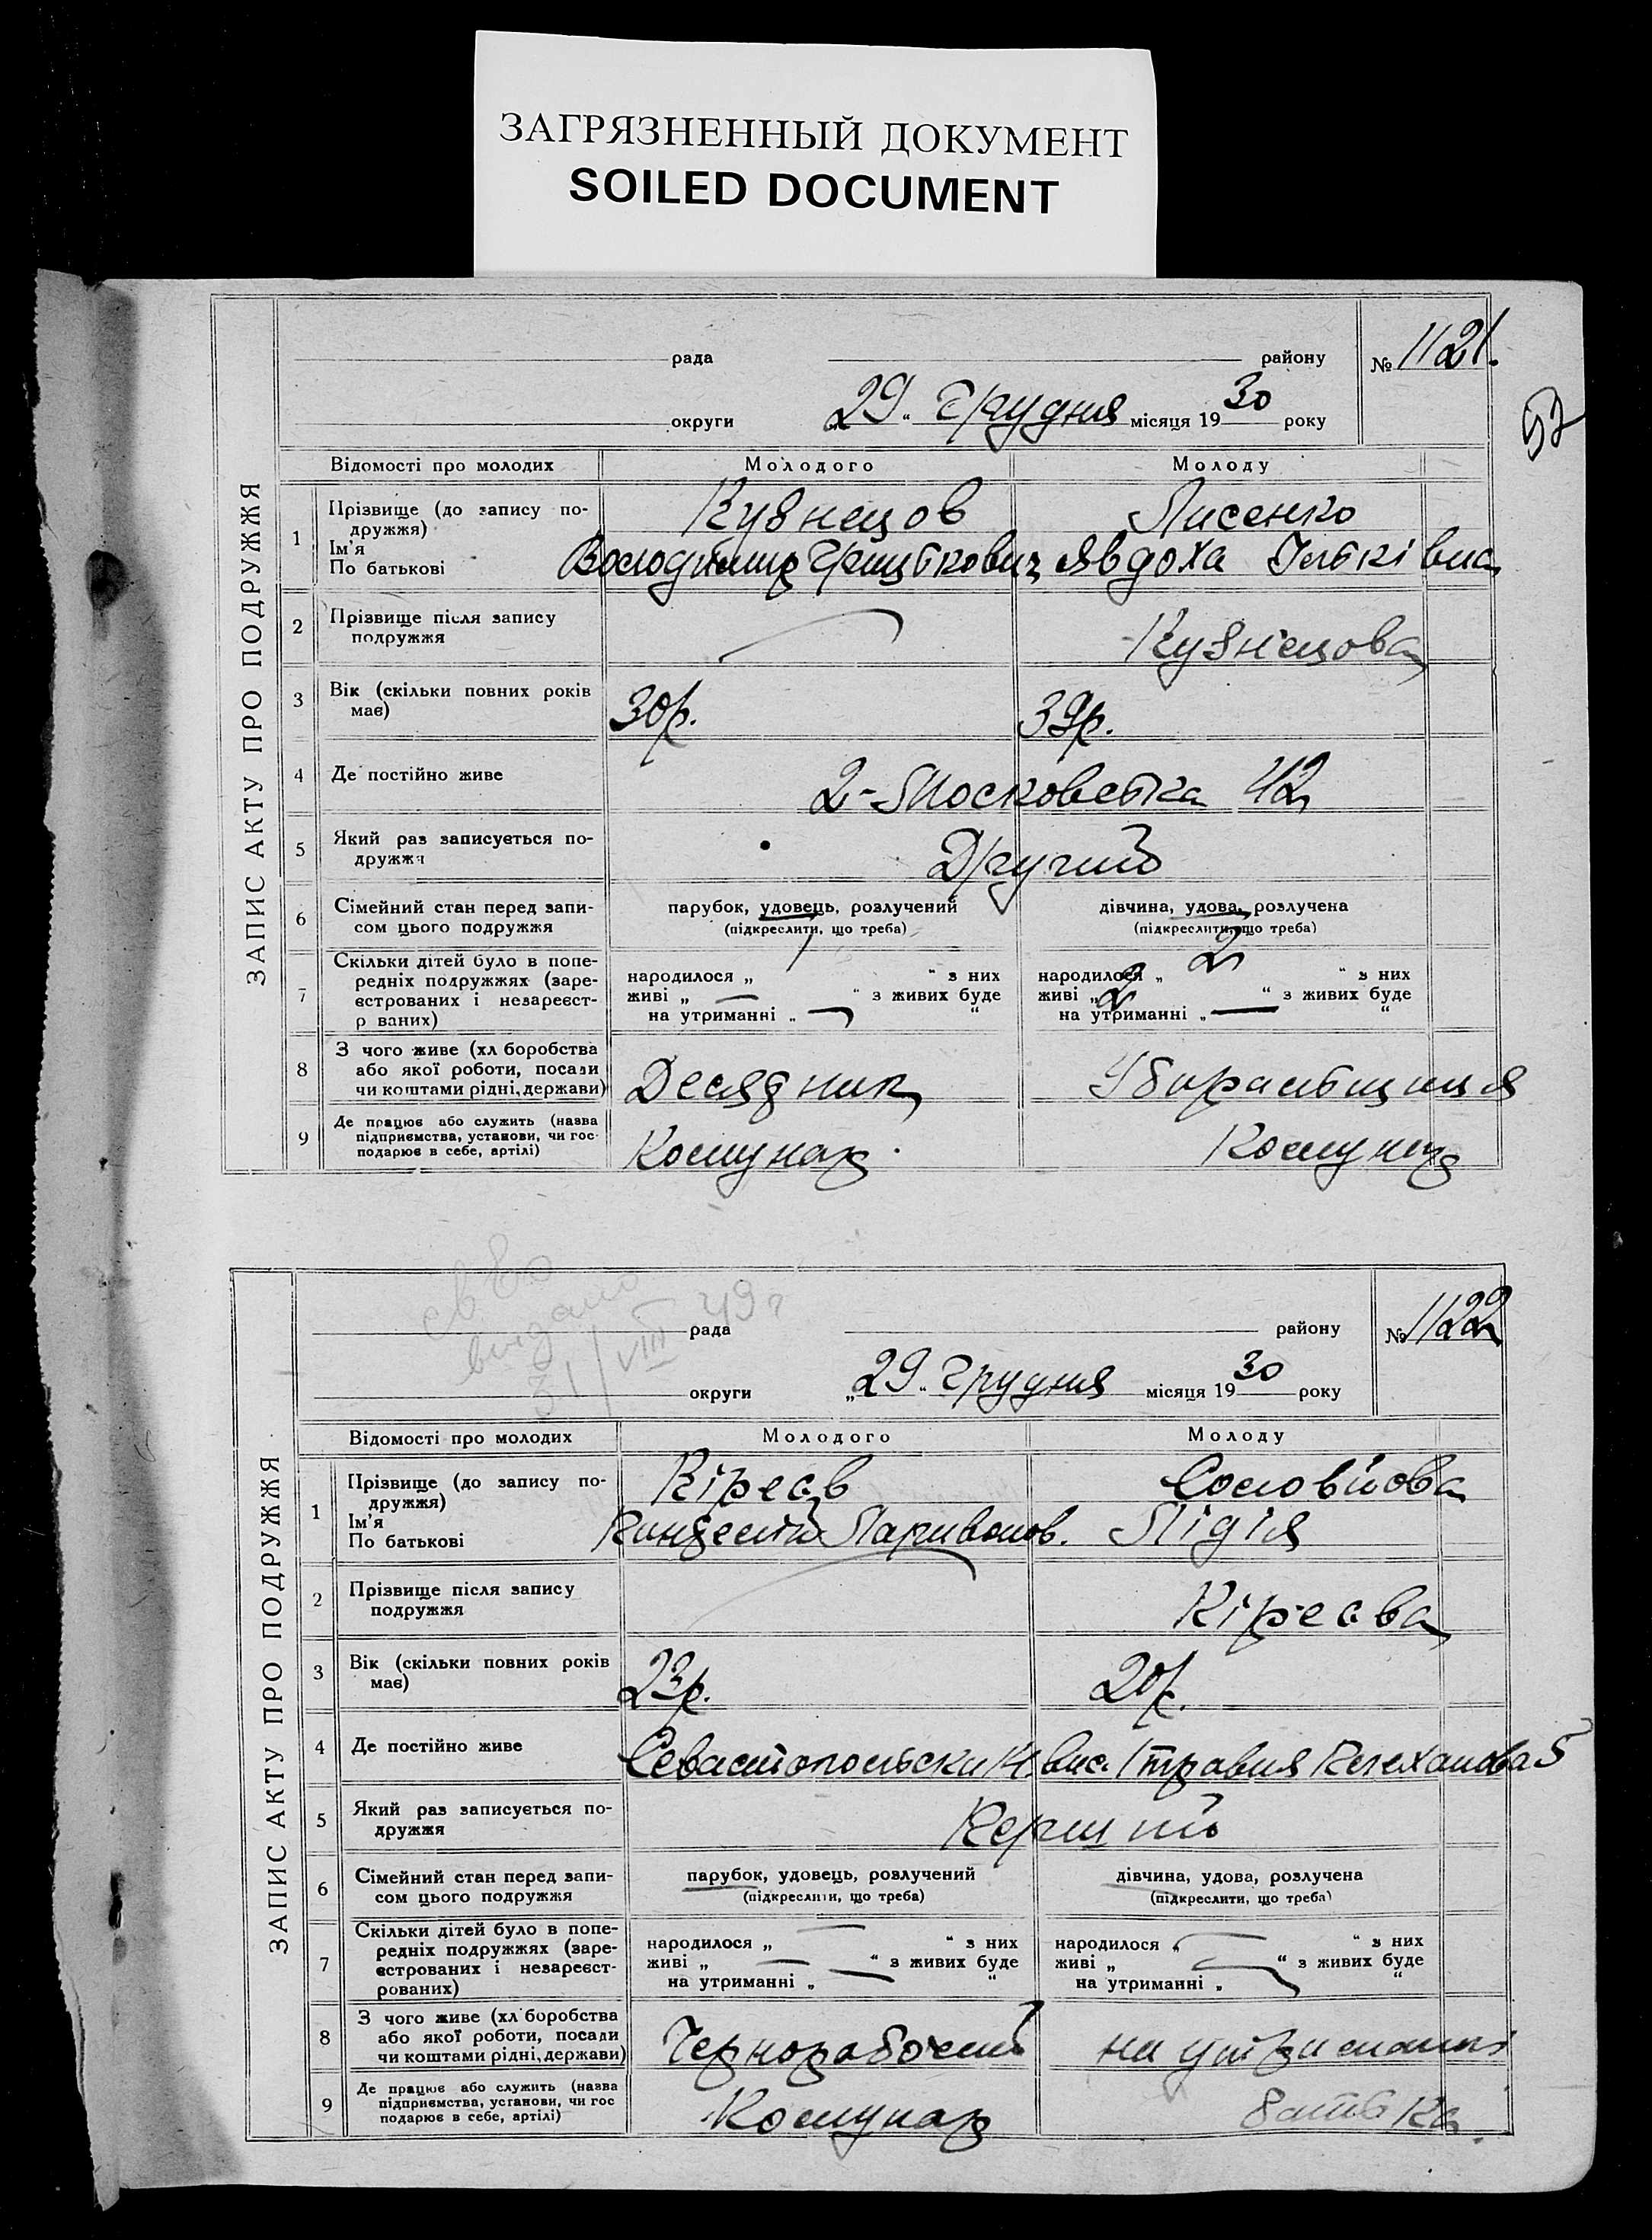 ЗАГРЯЗНЕННЫЙ ДОКУМЕНТ
SOILED DOCUMENT
ЗАПИС АКТУ ПРО ПОДРУЖЖЯ
рада району № 1121.
округи „29“ Грудня місяця 1930 року
52
Відомості про молодих Молодого Молоду
1 Прізвище (до запису по-
дружжя) Кузнецов Лисенко
Ім'я
По батькові Володимир Грицькович Явдоха Ільківна
2 Прізвище після запису
подружжя Кузнецова
3 Вік (скільки повних років
має) 30р. 39р.
4 Де постійно живе 2-Московська 42
5 Який раз записується по-
дружжя Другий
6 Сімейний стан перед запи-
сом цього подружжя
парубок, удовець, розлучений дівчина, удова, розлучена
(підкреслити, що треба) (підкреслити, що треба)
7 Скільки дітей було в попе-
редніх подружжях (заре-
єстрованих і незареєст-
р ваних)
народилося „ “ з них народилося „ 2 “ з них
живі „ — “ з живих буде живі „ 2 “ з живих буде
на утриманні „ — “ на утриманні „ — “
8 З чого живе (хл боробства
або якої роботи, посади
чи коштами рідні, держави) Десядник Убиральщиця
9 Де працює або служить (назва
підприємства, установи, чи гос-
подарює в себе, артілі) Комунар Комунар
ЗАПИС АКТУ ПРО ПОДРУЖЖЯ
св во
видано
31/VIII 49 г
рада району № 1122
округи „29“ Грудня місяця 1930 року
Відомості про молодих Молодого Молоду
1 Прізвище (до запису по-
дружжя) Кірєєв Соловйова
Ім'я
По батькові Ларивонов. Лідія
2 Прізвище після запису
подружжя Кірєєва
3 Вік (скільки повних років
має) 23р. 20р.
4 Де постійно живе Севастопольськи 14. вис. 1 травня Плеханова 5
5 Який раз записується по-
дружжя Перший
6 Сімейний стан перед запи-
сом цього подружжя
парубок, удовець, розлучений дівчина, удова, розлучена
(підкреслити, що треба) (підкреслити, що треба)
7 Скільки дітей було в попе-
редніх подружжях (заре-
єстрованих і незареєст-
рованих)
народилося „ — “ з них народилося „ — “ з них
живі „ — “ з живих буде живі „ — “ з живих буде
на утриманні „ — “ на утриманні „ — “
8 З чого живе (хл боробства
або якої роботи, посади
чи коштами рідні, держави) Чернорабочий на утриманні
9 Де працює або служить (назва
підприємства, установи, чи гос
подарює в себе, артілі) Комунар батька